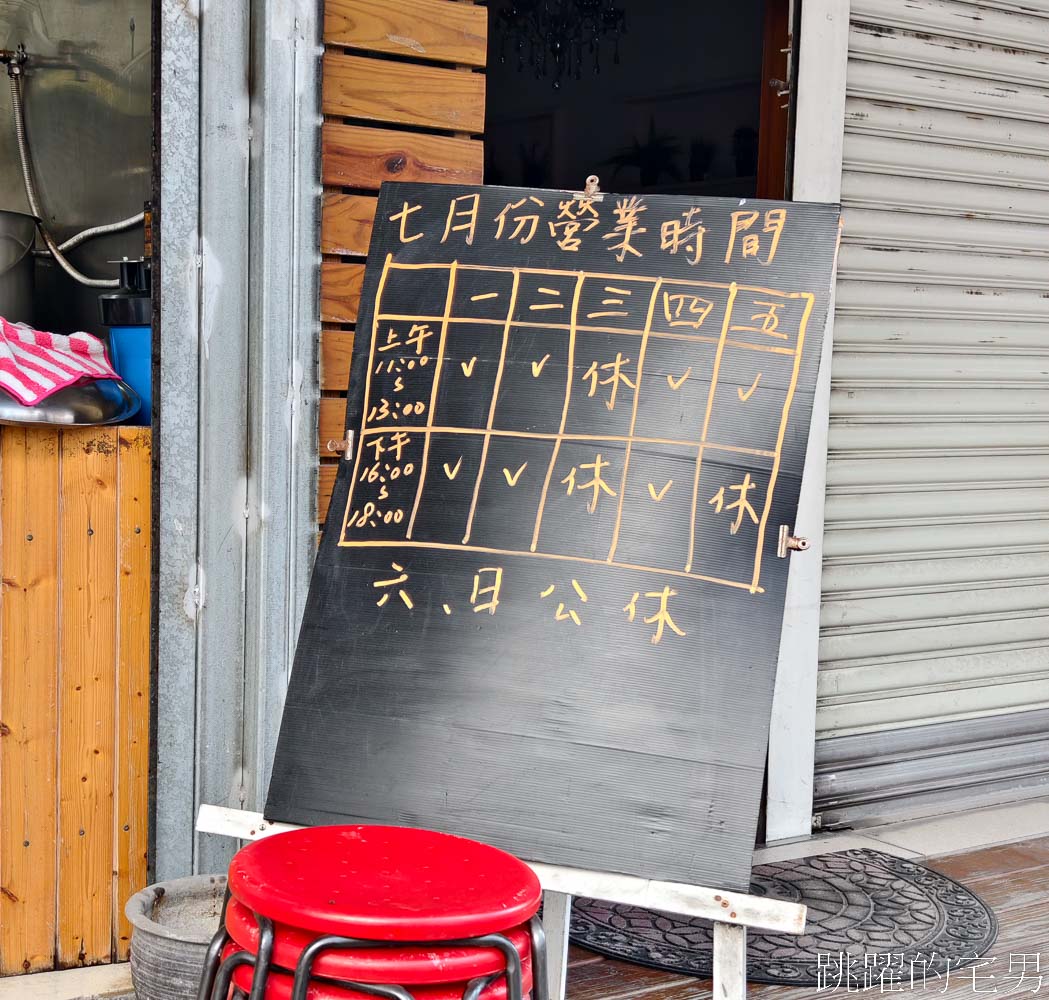 七月份營業時間
一 二 三 四 五
上午
11:00
∫
13:00
✓ ✓ 休 ✓ ✓
下午
16:00
∫
18:00
✓ ✓ 休 ✓ 休
六、日公休
跳躍的宅男